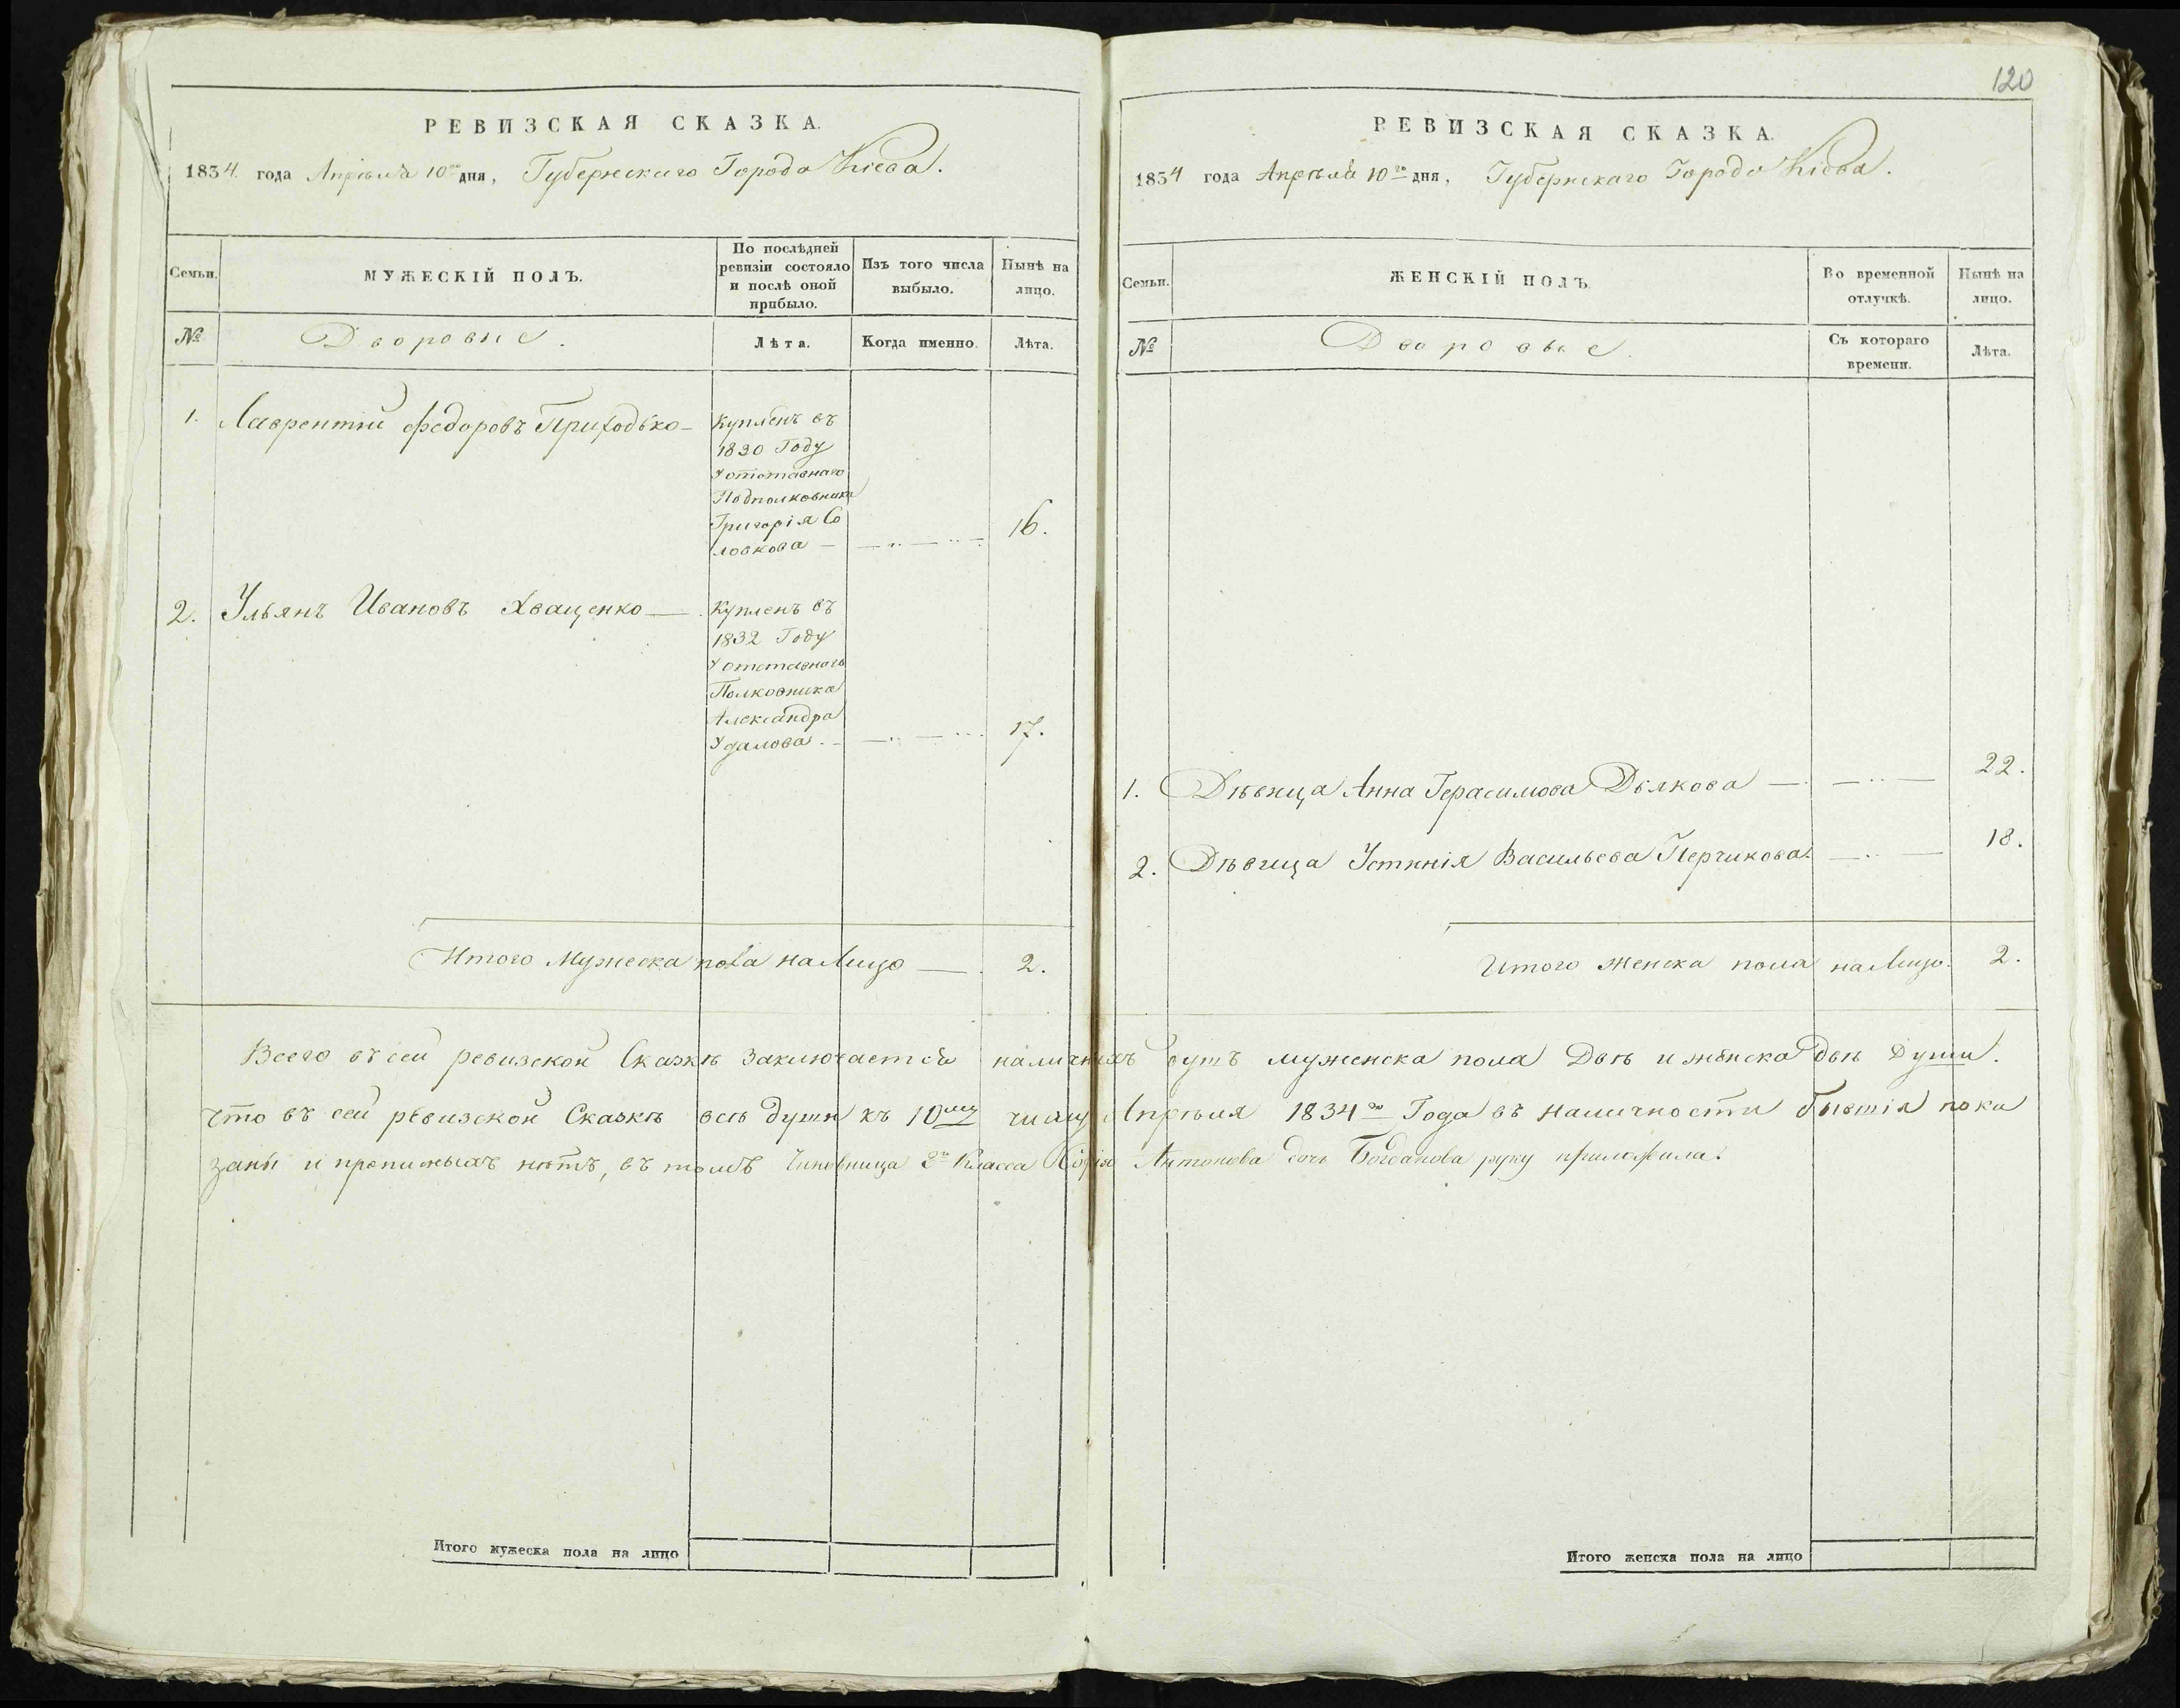 120
РЕВИЗСКАЯ СКАЗКА.
1834 года Апрѣля 10го дня, Губернскаго Города Кіева.
Семьи.
МУЖЕСКІЙ ПОЛЪ.
По послѣдней
ревизіи состояло
и послѣ оной
прибыло.
Изъ того числа
выбыло.
Нынѣ на
лицо.
№
Дворовые.
Лѣта.
Когда именно.
Лѣта.
1. Лаврентій Федоровъ Приходько —
Купленъ въ
1830 Году
У отставнаго
Подполковника
Григорія Со
ловкова — 16.
2. Ульянъ Ивановъ Хващенко —
Купленъ въ
1832 Году
У отставнаго
Полковника
Александра
Удалова. — 17.
Итого Мужеска пола на Лицо — 2.
РЕВИЗСКАЯ СКАЗКА.
1834 года Апрѣля 10го дня, Губернскаго Города Кіева.
Семьи.
ЖЕНСКІЙ ПОЛЪ.
Во временной
отлучкѣ.
Нынѣ на
лицо.
№
Дворовые.
Съ котораго
времени.
Лѣта.
1. Дѣвица Анна Герасимова Дѣякова — 22.
2. Дѣвица Устинія Васильева Перчикова. 18.
Итого Женска пола на Лицо. 2.
Всего въ сей ревизской Сказкѣ Заключается наличныхъ душъ мужеска пола Двѣ и женска двѣ Души.
Что въ сей ревизской Сказкѣ всѣ души къ 10му числу Апрѣля 1834го Года въ наличности бытія пока
заны и прописныхъ нѣтъ, въ томъ Чиновница 8го Класса Антонова дочь Богданова руку приложила.
Итого мужеска пола на лицо
Итого женска пола на лицо